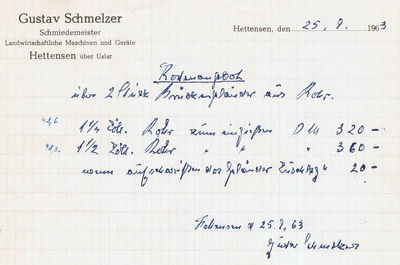 Gustav Schmelzer
Schmiedemeister
Landwirtschaftliche Maschinen und Geräte
Hettensen über Uslar
Hettensen, den 25. 9. 1963
Kostenangebot
über 2 Stück Brückengeländer aus Rohr.
1 1/4 Zöll. Rohr zum eingießen DM 320 -
1 1/2 Zöll. Rohr " " " 360 -
wenn aufschweißen der Geländer Zuschlag 20 -
Hettensen d 25. 9. 63
Gustav Schmelzer